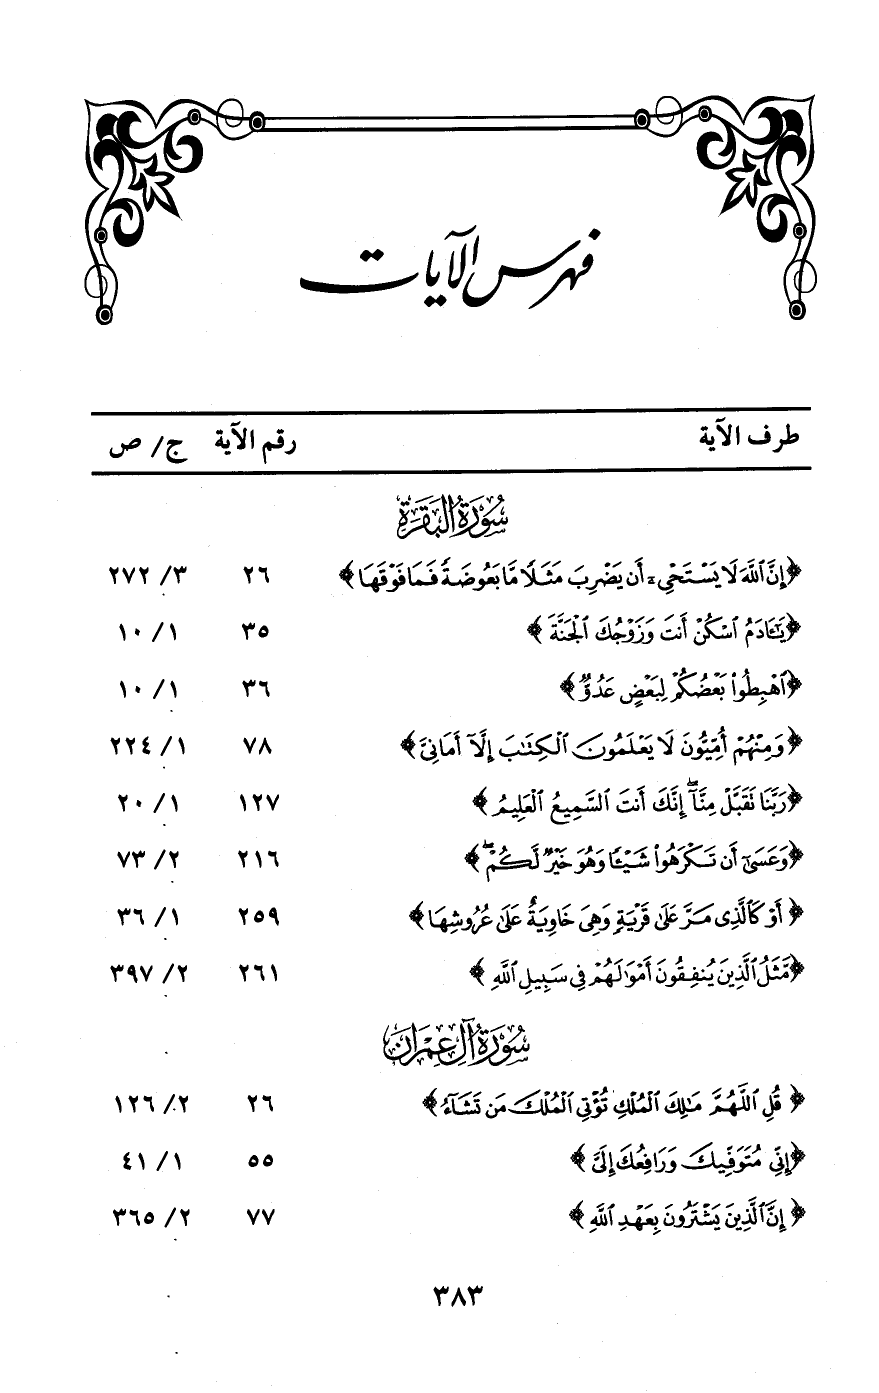 فهرس الآيات
طرف الآية رقم الآية ج/ ص
سُورَةُ البَقَرَةِ
﴿إِنَّ اللَّهَ لَا يَسْتَحْيِۦٓ أَن يَضْرِبَ مَثَلًا مَّا بَعُوضَةً فَمَا فَوْقَهَا﴾ ٢٦ ٣/ ٢٧٢
﴿يَٰٓـَٔادَمُ ٱسْكُنْ أَنتَ وَزَوْجُكَ ٱلْجَنَّةَ﴾ ٣٥ ١/ ١٠
﴿ٱهْبِطُوا۟ بَعْضُكُمْ لِبَعْضٍ عَدُوٌّ﴾ ٣٦ ١/ ١٠
﴿وَمِنْهُمْ أُمِّيُّونَ لَا يَعْلَمُونَ ٱلْكِتَٰبَ إِلَّآ أَمَانِىَّ﴾ ٧٨ ١/ ٢٢٤
﴿رَبَّنَا تَقَبَّلْ مِنَّآ ۖ إِنَّكَ أَنتَ ٱلسَّمِيعُ ٱلْعَلِيمُ﴾ ١٢٧ ١/ ٢٠
﴿وَعَسَىٰٓ أَن تَكْرَهُوا۟ شَيْـًٔا وَهُوَ خَيْرٌ لَّكُمْ ۖ﴾ ٢١٦ ٢/ ٧٣
﴿أَوْ كَٱلَّذِى مَرَّ عَلَىٰ قَرْيَةٍ وَهِىَ خَاوِيَةٌ عَلَىٰ عُرُوشِهَا﴾ ٢٥٩ ١/ ٣٦
﴿مَّثَلُ ٱلَّذِينَ يُنفِقُونَ أَمْوَٰلَهُمْ فِى سَبِيلِ ٱللَّهِ﴾ ٢٦١ ٢/ ٣٩٧
سُورَةُ آلِ عِمْرَانَ
﴿قُلِ ٱللَّهُمَّ مَٰلِكَ ٱلْمُلْكِ تُؤْتِى ٱلْمُلْكَ مَن تَشَآءُ﴾ ٢٦ ٢/ ١٢٦
﴿إِنِّى مُتَوَفِّيكَ وَرَافِعُكَ إِلَىَّ﴾ ٥٥ ١/ ٤١
﴿إِنَّ ٱلَّذِينَ يَشْتَرُونَ بِعَهْدِ ٱللَّهِ﴾ ٧٧ ٢/ ٣٦٥
٣٨٣